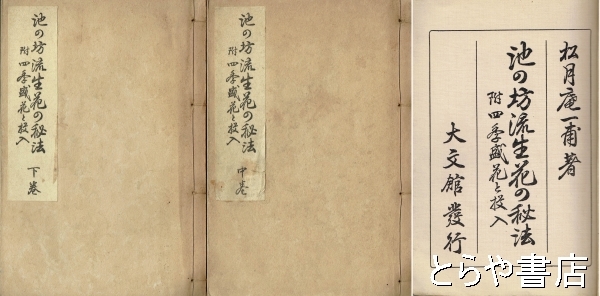 池の坊流生花の秘法
附四季盛花と投入
下巻
池の坊流生花の秘法
附四季盛花と投入
中巻
松月庵一甫著
池の坊流生花の秘法
附四季盛花と投入
大文館發行
とらや書店